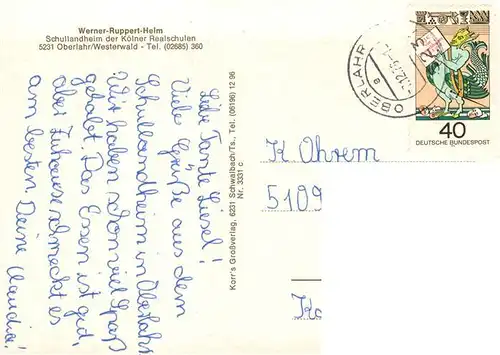 Werner-Ruppert-Heim
Schullandheim der Kölner Realschulen
5231 Oberlahr/Westerwald - Tel. (02685) 360
Liebe Tante Liesel!
Viele Grüße aus dem
Schullandheim in Oberlahr
Wir haben schon viel Spaß
gehabt. Das Essen ist gut,
aber Zuhause schmeckt es
am besten. Deine Claudia!
Korr's Großverlag, 6231 Schwalbach/Ts., Tel. (06196) 12 96
Nr. 3331 c
OBERLAHR
40
DEUTSCHE BUNDESPOST
K Ohrem
5109